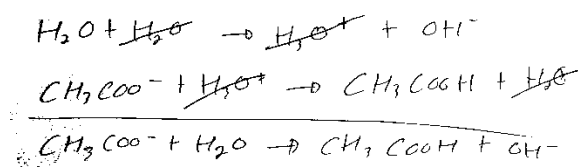 H₂O + H₂O → H₃O⁺ + OH⁻
CH₃COO⁻ + H₃O⁺ → CH₃COOH + H₂O
CH₃COO⁻ + H₂O → CH₃COOH + OH⁻